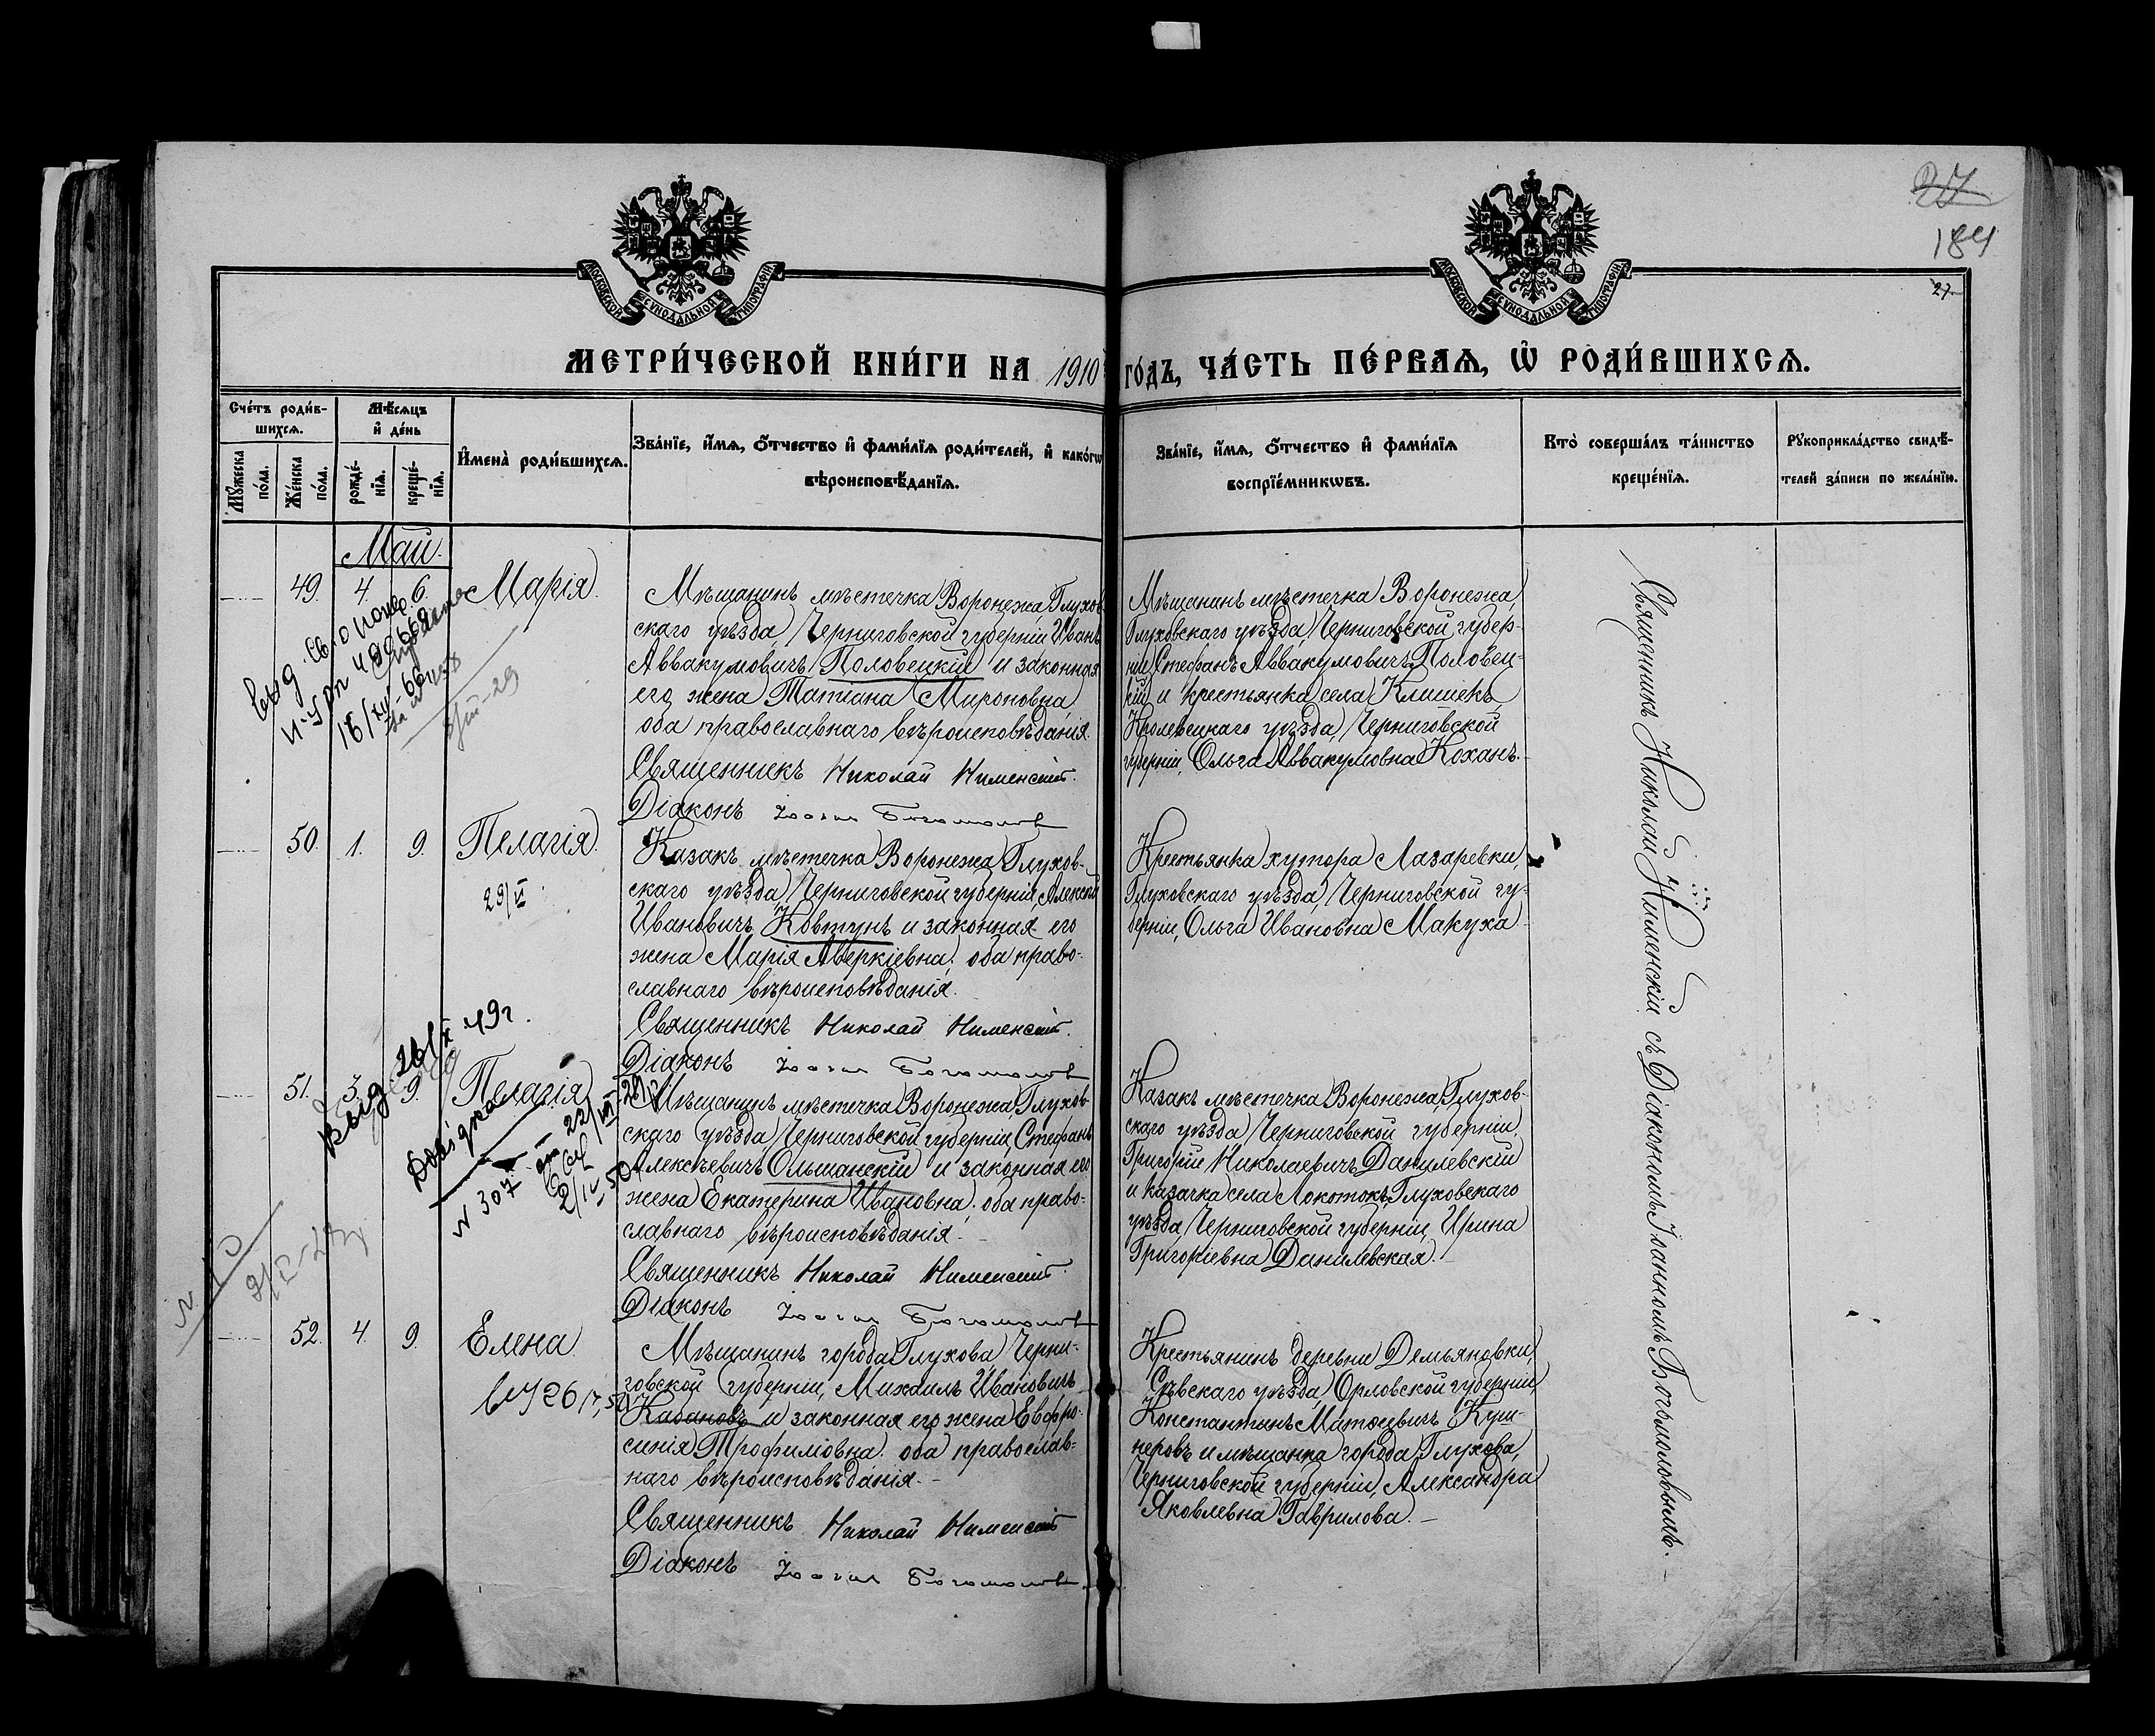 27
184
27
МОСКОВСКОЙ СѴНОДАЛЬНОЙ ТИПОГРАФІИ
МОСКОВСКОЙ СѴНОДАЛЬНОЙ ТИПОГРАФІИ
МЕТРИ́ЧЕСКОЙ КНИ́ГИ НА 1910 ГО́ДЪ, ЧА́СТЬ ПЕ́РВАѦ, Ѡ҆ РОДИ́ВШИХСѦ.
Сче́тъ роди́в-
шихсѧ.
Мѣ́сѧцъ
и҆ де́нь
Мꙋ́жеска
по́ла.
Же́нска
по́ла.
рожде́-
нїѧ.
креще́-
нїѧ.
И҆мена̀ роди́вшихсѧ.
Зва́нїе, и҆́мѧ, ѻ҆́тчество и҆ фами́лїѧ роди́телей, и҆ како́гѡ
вѣроисповѣ́данїѧ.
Зва́нїе, и҆́мѧ, ѻ҆́тчество и҆ фами́лїѧ
воспрїе́мникѡвъ.
Кто̀ соверша́лъ та́инство
креще́нїѧ.
Рꙋкоприкла́дство свидѣ́-
телей за́писи по жела́нїю.
Май.
49. 4. 6. Марія.
Мѣщанинъ мѣстечка Воронежа, Глухов-
скаго уѣзда, Черниговской губерніи Иванъ
Аввакумовичъ Половецкій и законная
его жена Татіана Мироновна
оба православнаго вѣроисповѣданія.
Священникъ Николай Нименскій.
Діаконъ Іоаннъ Богомоловъ
Мѣщанинъ мѣстечка Воронежа,
Глуховскаго уѣзда, Черниговской губер-
ніи Стефанъ Аввакумовичъ Половец-
кій и крестьянка села Клишекъ,
Кролевецкаго уѣзда, Черниговской
губерніи, Ольга Аввакумовна Коханъ.
50. 1. 9. Пелагія.
29/VI
Казакъ мѣстечка Воронежа, Глухов-
скаго уѣзда, Черниговской губерніи, Алексѣй
Ивановичъ Ковтунъ и законная его
жена Марія Аверкіевна; оба право-
славнаго вѣроисповѣданія.
Священникъ Николай Нименскій.
Діаконъ Іоаннъ Богомоловъ
Крестьянка хутора Лазаревки,
Глуховскаго уѣзда, Черниговской гу-
берніи, Ольга Ивановна Макуха.
51. 3. 9. Пелагія
Мѣщанинъ мѣстечка Воронежа, Глухов-
скаго уѣзда, Черниговской губерніи, Стефанъ
Алексѣевичъ Ольшанскій и законная его
жена Екатерина Ивановна; оба право-
славнаго вѣроисповѣданія.
Священникъ Николай Нименскій.
Діаконъ Іоаннъ Богомоловъ
Казакъ мѣстечка Воронежа, Глухов-
скаго уѣзда, Черниговской губерніи,
Григорій Николаевичъ Данилевскій
и казачка села Локотокъ, Глуховскаго
уѣзда, Черниговской губерніи, Ирина
Григоріевна Данилевская.
52. 4. 9. Елена
Мѣщанинъ города Глухова, Черни-
говской губерніи, Михаилъ Ивановичъ
Кабановъ и законная его жена Евфро-
синія Трофимовна; оба православ-
наго вѣроисповѣданія.
Священникъ Николай Нименскій
Діаконъ Іоаннъ Богомоловъ.
Крестьянинъ деревни Демьяновки,
Сѣвскаго уѣзда, Орловской губерніи
Константинъ Матѳеевичъ Куш-
неровъ и мѣщанка города Глухова,
Черниговской губерніи, Александра
Яковлевна Гаврилова.
Священникъ Николай Нименскій съ Діакономъ Іоанномъ Богомоловымъ.
Выд 26/X 49г.
N 307 от 22/VII